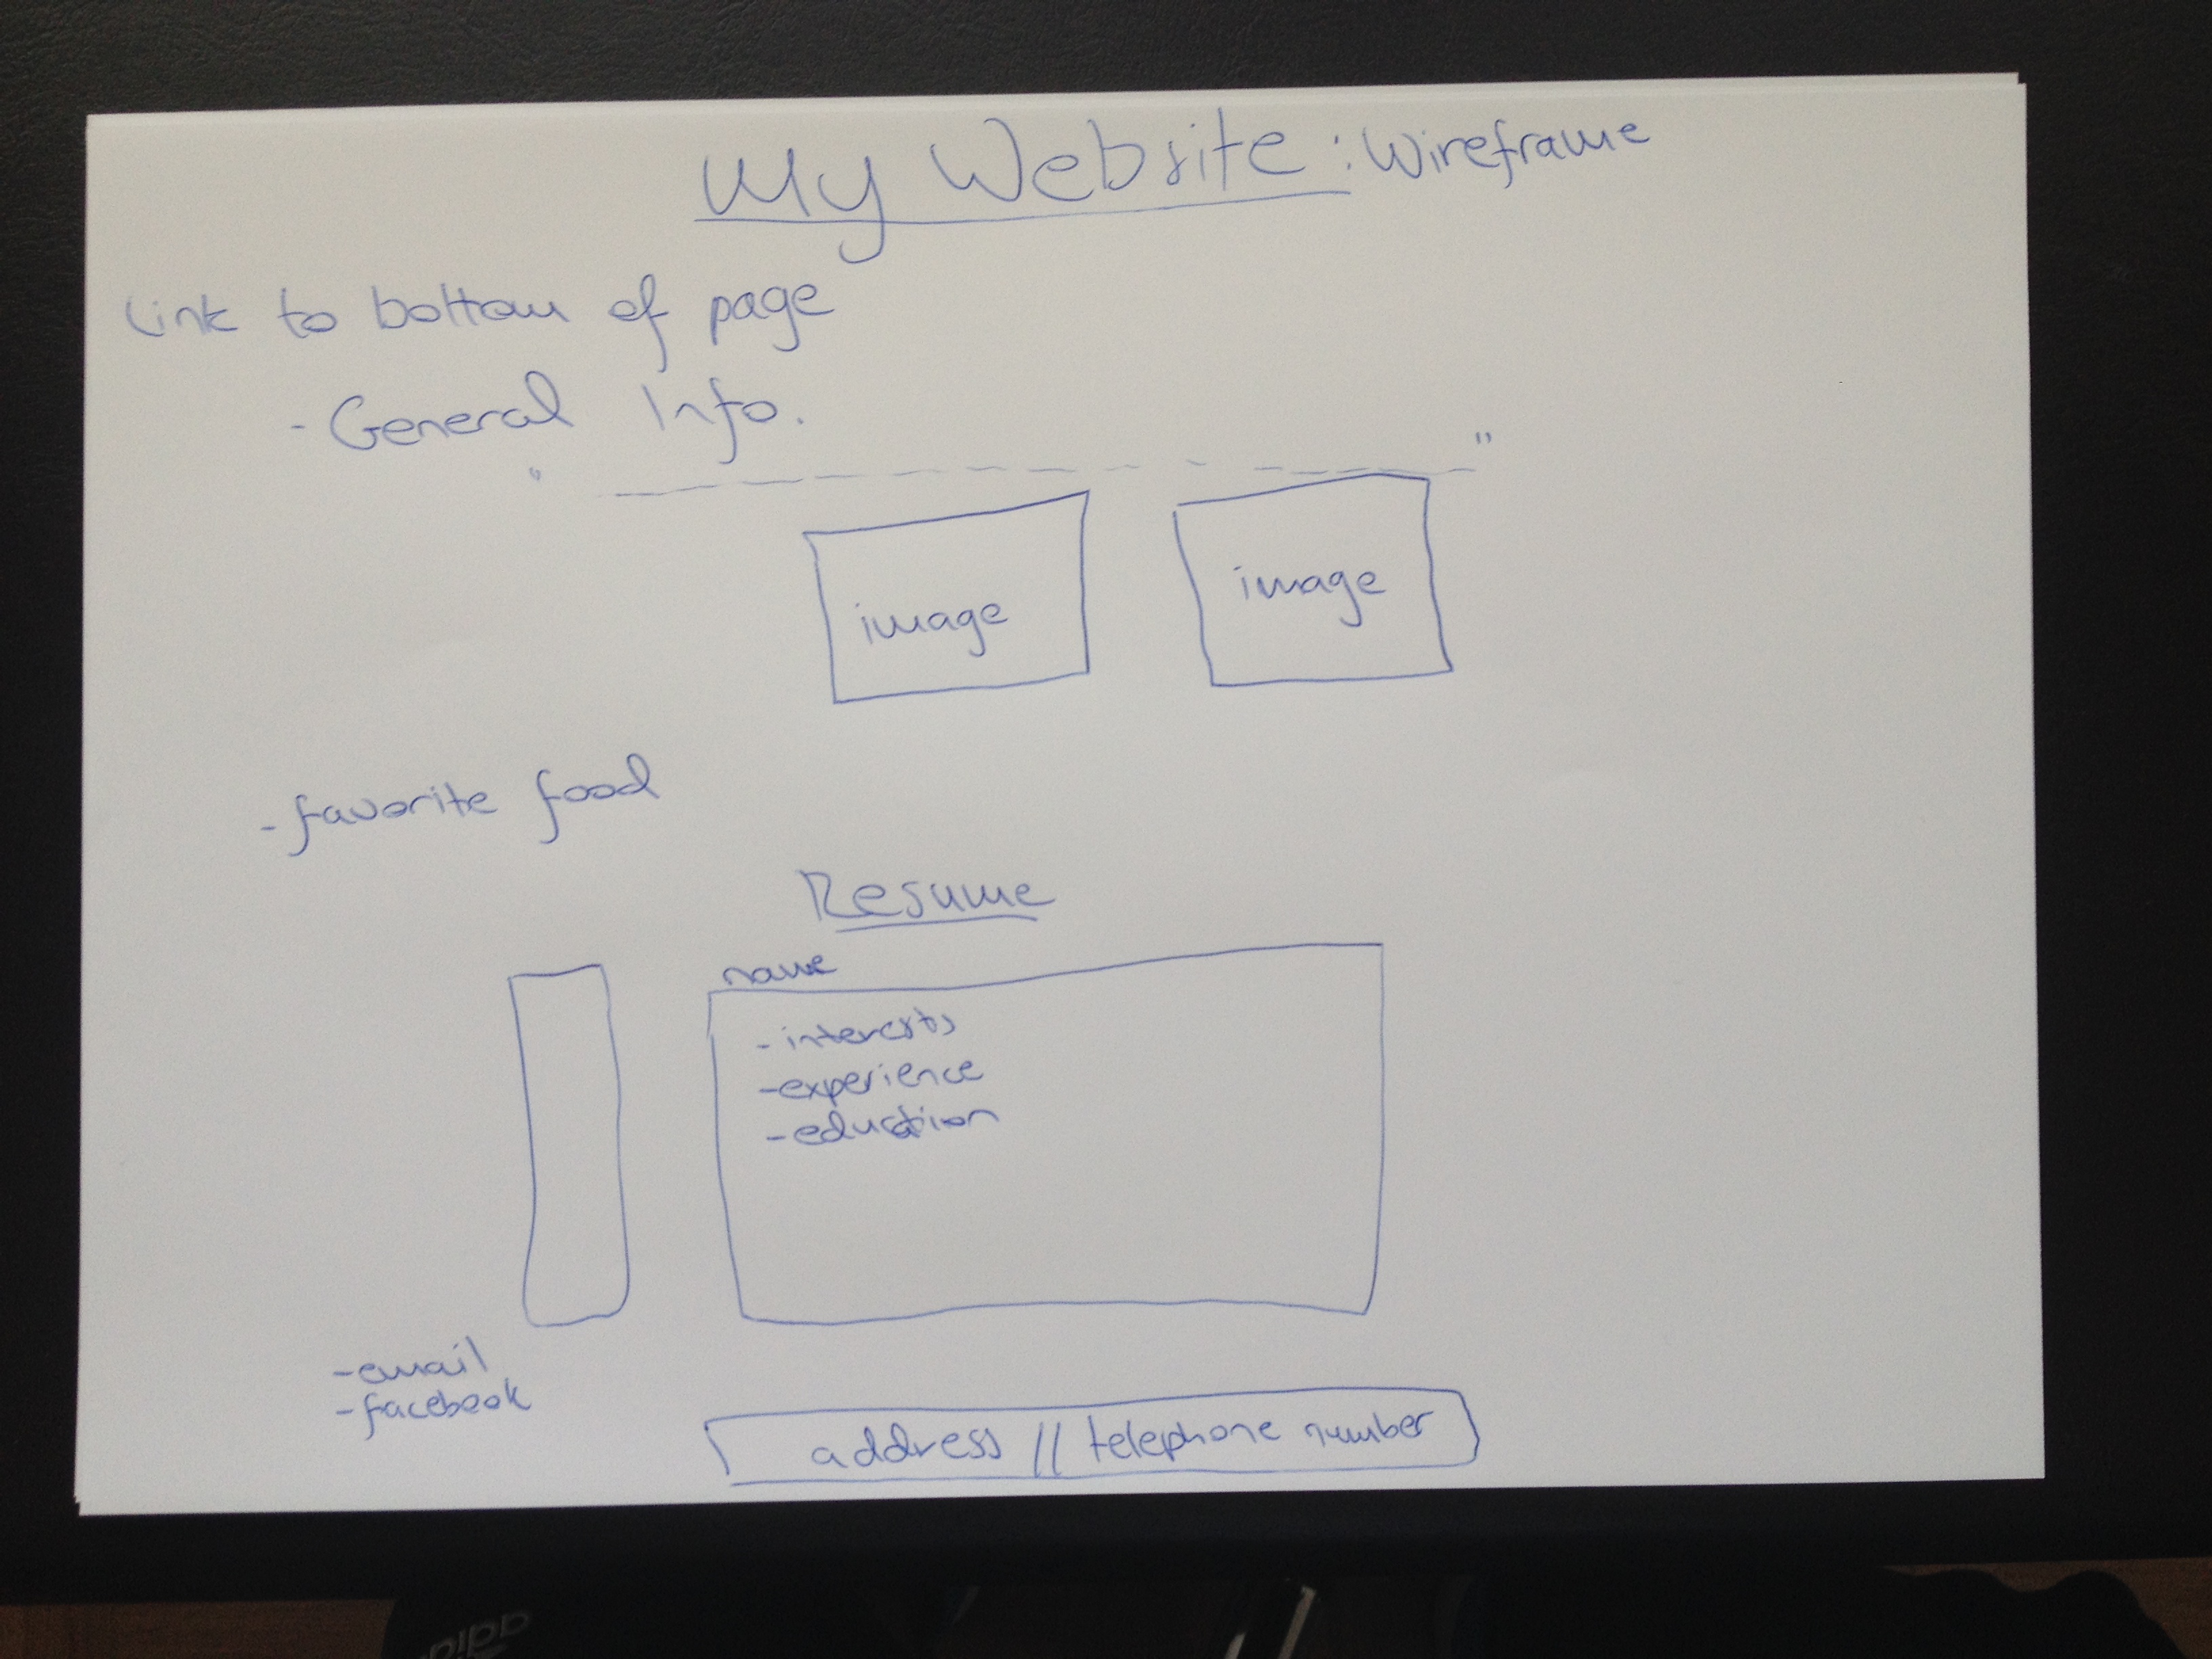 My Website : Wireframe
Link to bottom of page
- General Info.
" "
image
image
- favorite food
Resume
name
- interests
- experience
- education
- email
- facebook
address // telephone number